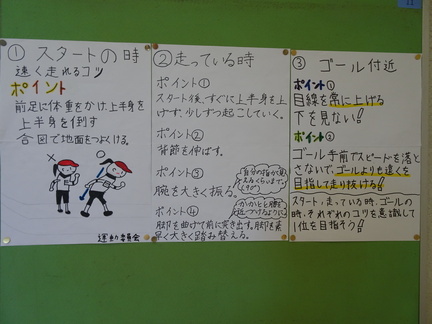 ① スタートの時
速く走れるコツ
ポイント
前足に体重をかけ、上半身を
上半身を倒す
合図で地面をつよくける。
×
○
運動委員会
② 走っている時
ポイント①
スタート後、すぐに上半身を上
げず、少しずつ起こしていく。
ポイント②
背筋を伸ばす。
ポイント③
腕を大きく振る。
自分の指が見
えるくらいまで
(90°)
ポイント④
かかとと腰を
近づけるように
脚を曲げて前に突き出す。脚を素
早く大きく踏み替える。
③ ゴール付近
ポイント①
目線を常に上げる
下を見ない!
ポイント②
ゴール手前でスピードを落と
さないで、ゴールよりも遠くを
目指して走り抜ける!
スタート、走っている時、ゴールの
時、それぞれのコツを意識して
1位を目指そう!